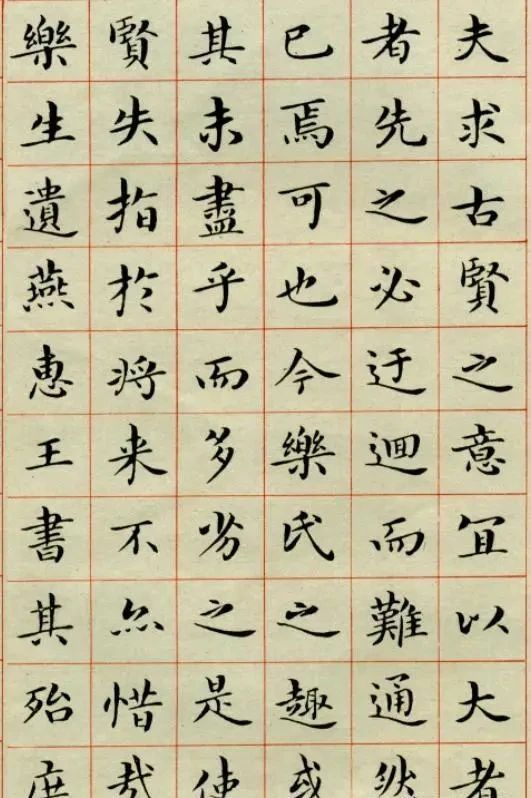 夫求古賢之意冝以大者
者先之必迂迴而難通然
巳焉可也今樂氏之趣或
其未盡乎而多劣之是使
賢失指於将来不亦惜哉
樂生遺燕惠王書其殆庶